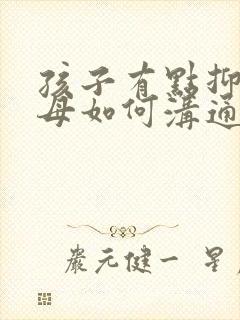 孩子有點抑
母如何溝通
嚴元健一 星